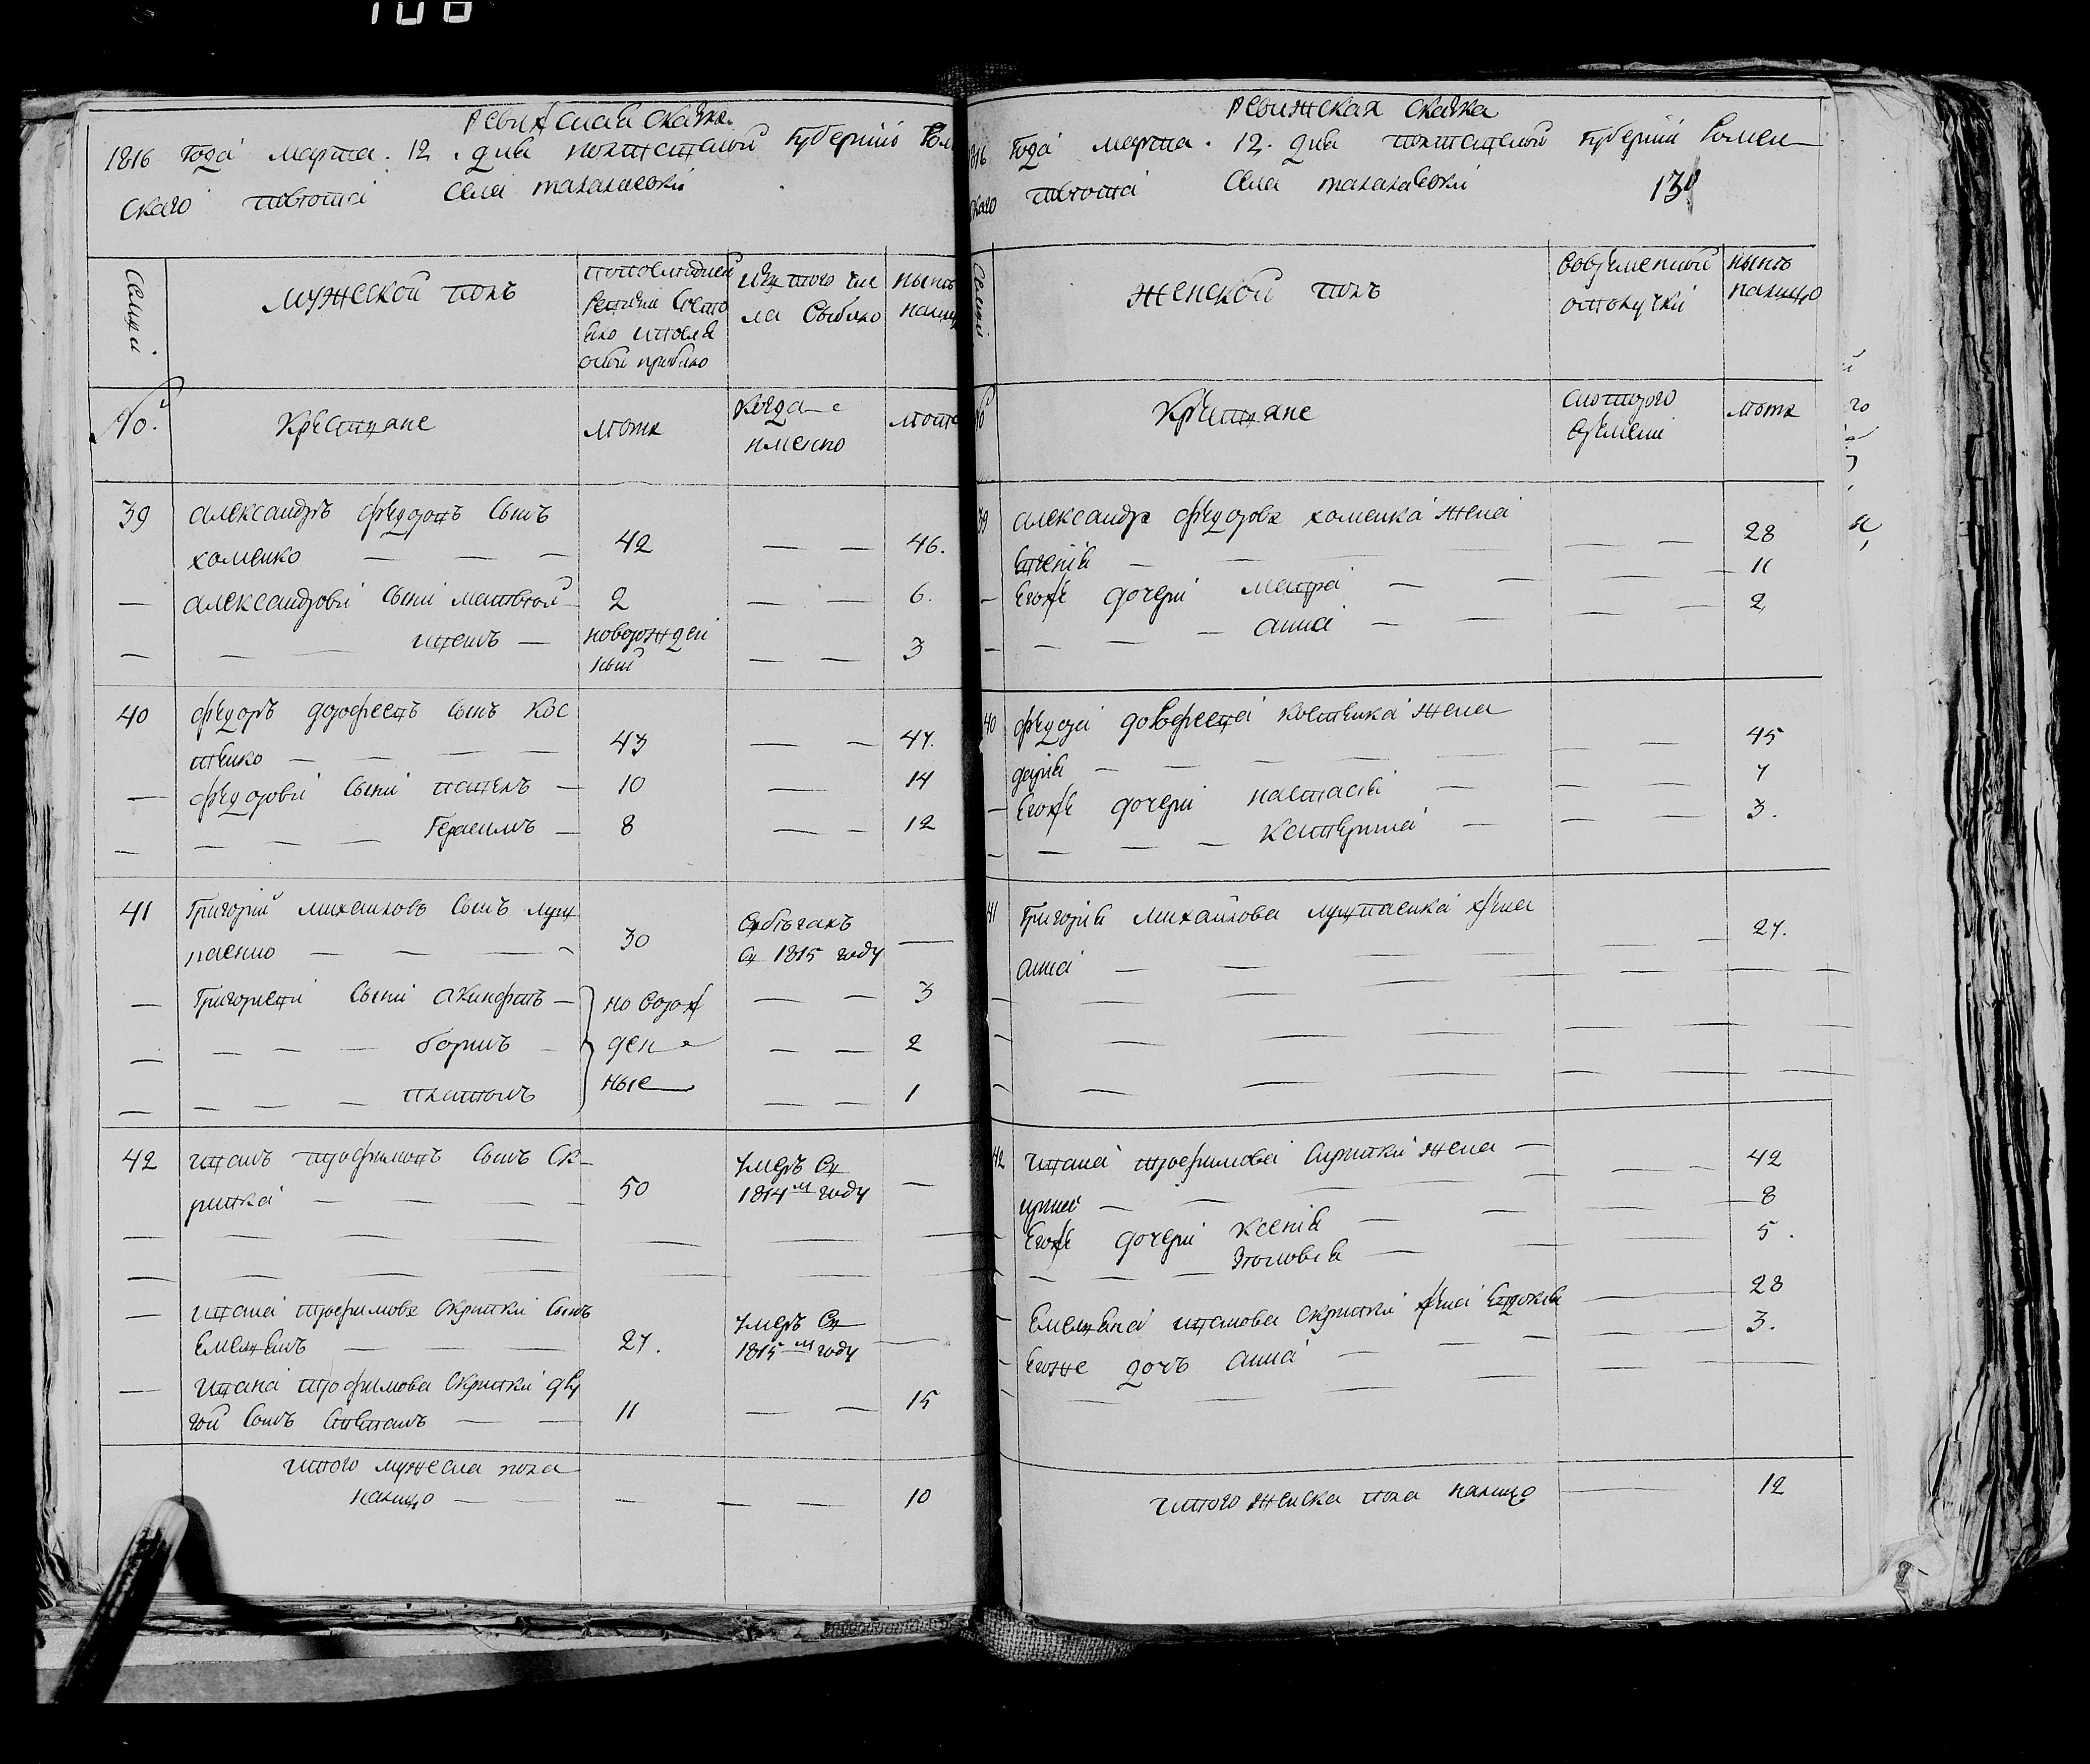 108
Ревижская сказка
1816 года марта 12 дня полтавской губернии Ром
скаго повѣта села талалаевки
Семьи
мужеской полъ
попоследней ревизии состо яло ипосле оной прибыло
изъ того чи сла выбыло
нынѣ налицо
№
Крестяне
лѣта
Когда именно
лѣта
39 александръ федоровъ сынъ
хоменко — — — 42 — — 46.
— александрови сыни матвѣй — 2 — — 6.
— — — иванъ — новорожден ный — — 3
40 федоръ дорофеевъ сынъ кос
тенко — — — 43 — — 47.
— федорови сыни павелъ — 10 — — 14
— — — — Герасимъ — 8 — — 12
41 Григорий михаиловъ сынъ луц
паенко — — — 30 сбѣгалъ въ 1815 году —
— Григориеви сыни акинфтъ — новорож — — 3
— — — — борисъ — ден — — 2
— — — — платонъ ные — — 1
42 иванъ трофимовъ сынъ Ск-
рипка — — — 50 умеръ въ 1814м году —
— ивана трофимова скрипки сынъ
Емелянъ — — — 27. умеръ въ 1815м году —
— ивана трофимова скрипки дру
гой сынъ степанъ — — 11 — — 15
итого мужеска пола
налицо — — — — — 10
Ревижская сказка
1816 года марта 12 дня полтавской губернии Ромен
скаго повѣта села талалаевки 130
Семьи
женской полъ
вовременной отлучки
нынѣ налицо
№
Крестяне
скотораго времени
лѣта
39 александра федорова хоменка жена — — 28
евгения — — —
— Егоже дочери мотря — — — — 11
— — — — анна — — — 2
40 федора дорофеева костенка жена — — 45
дария — — — —
— Егоже дочери настасия — — — 7
— — — — катерина — — — 3.
41 Григория михайлова луцпаенка жена — — 27.
анна — — —
42 ивана трофимова скрипки жена — — — 42
ирина — — —
Егоже дочери ксения — — — 8
— — — зѣновия — — — 5.
— Емеляна иванова скрипки жена Евдокия — 28
— Егоже дочъ анна — — — 3.
итого женска пола налицо — 12